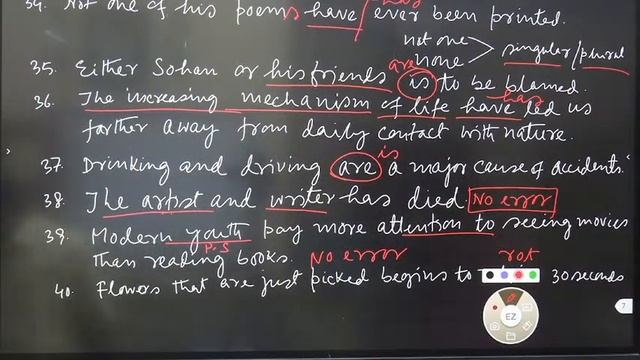 34. Not one of his poems have/ has ever been printed.
not one
none
singular/plural
35. Either Sohan or his friends are is to be blamed.
36. The increasing mechanism of life have has led us
farther away from daily contact with nature.
37. Drinking and driving are is a major cause of accidents.
38. The artist and writer has died. No error
39. Modern youth pay more attention to seeing movies
P.S
than reading books. No error rot
40. Flowers that are just picked begins to 30 seconds
EZ
7